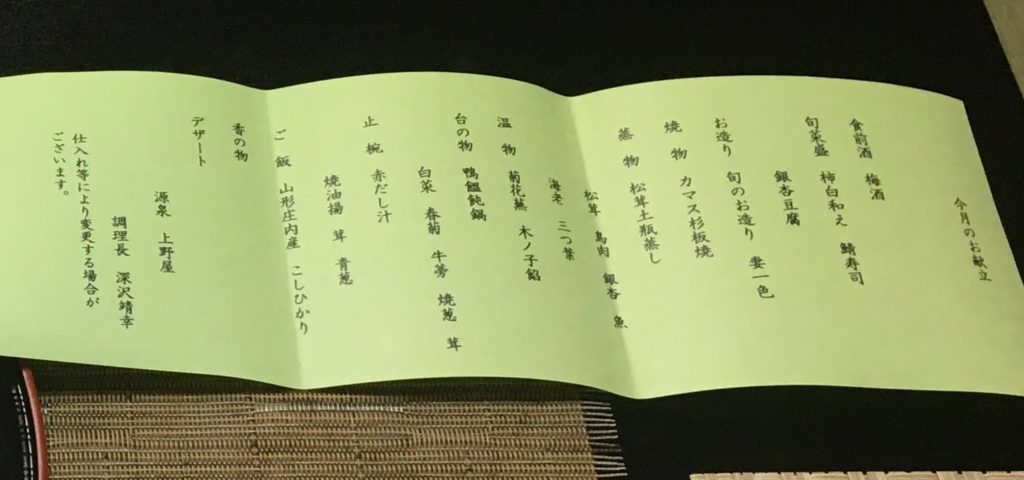 今月のお献立
食前酒 梅酒
旬菜盛 柿白和え 鯖寿司
銀杏豆腐
お造り 旬のお造り 妻一色
焼物 カマス杉板焼
蒸物 松茸土瓶蒸し
松茸 鳥肉 銀杏 魚
海老 三つ葉
温物 菊花蒸 木ノ子餡
台の物 鴨饂飩鍋
白菜 春菊 牛蒡 焼葱 茸
止椀 赤だし汁
焼油揚 茸 青葱
ご飯 山形庄内産 こしひかり
香の物
デザート
源泉 上野屋
調理長 深沢靖幸
仕入れ等により変更する場合が
ございます。